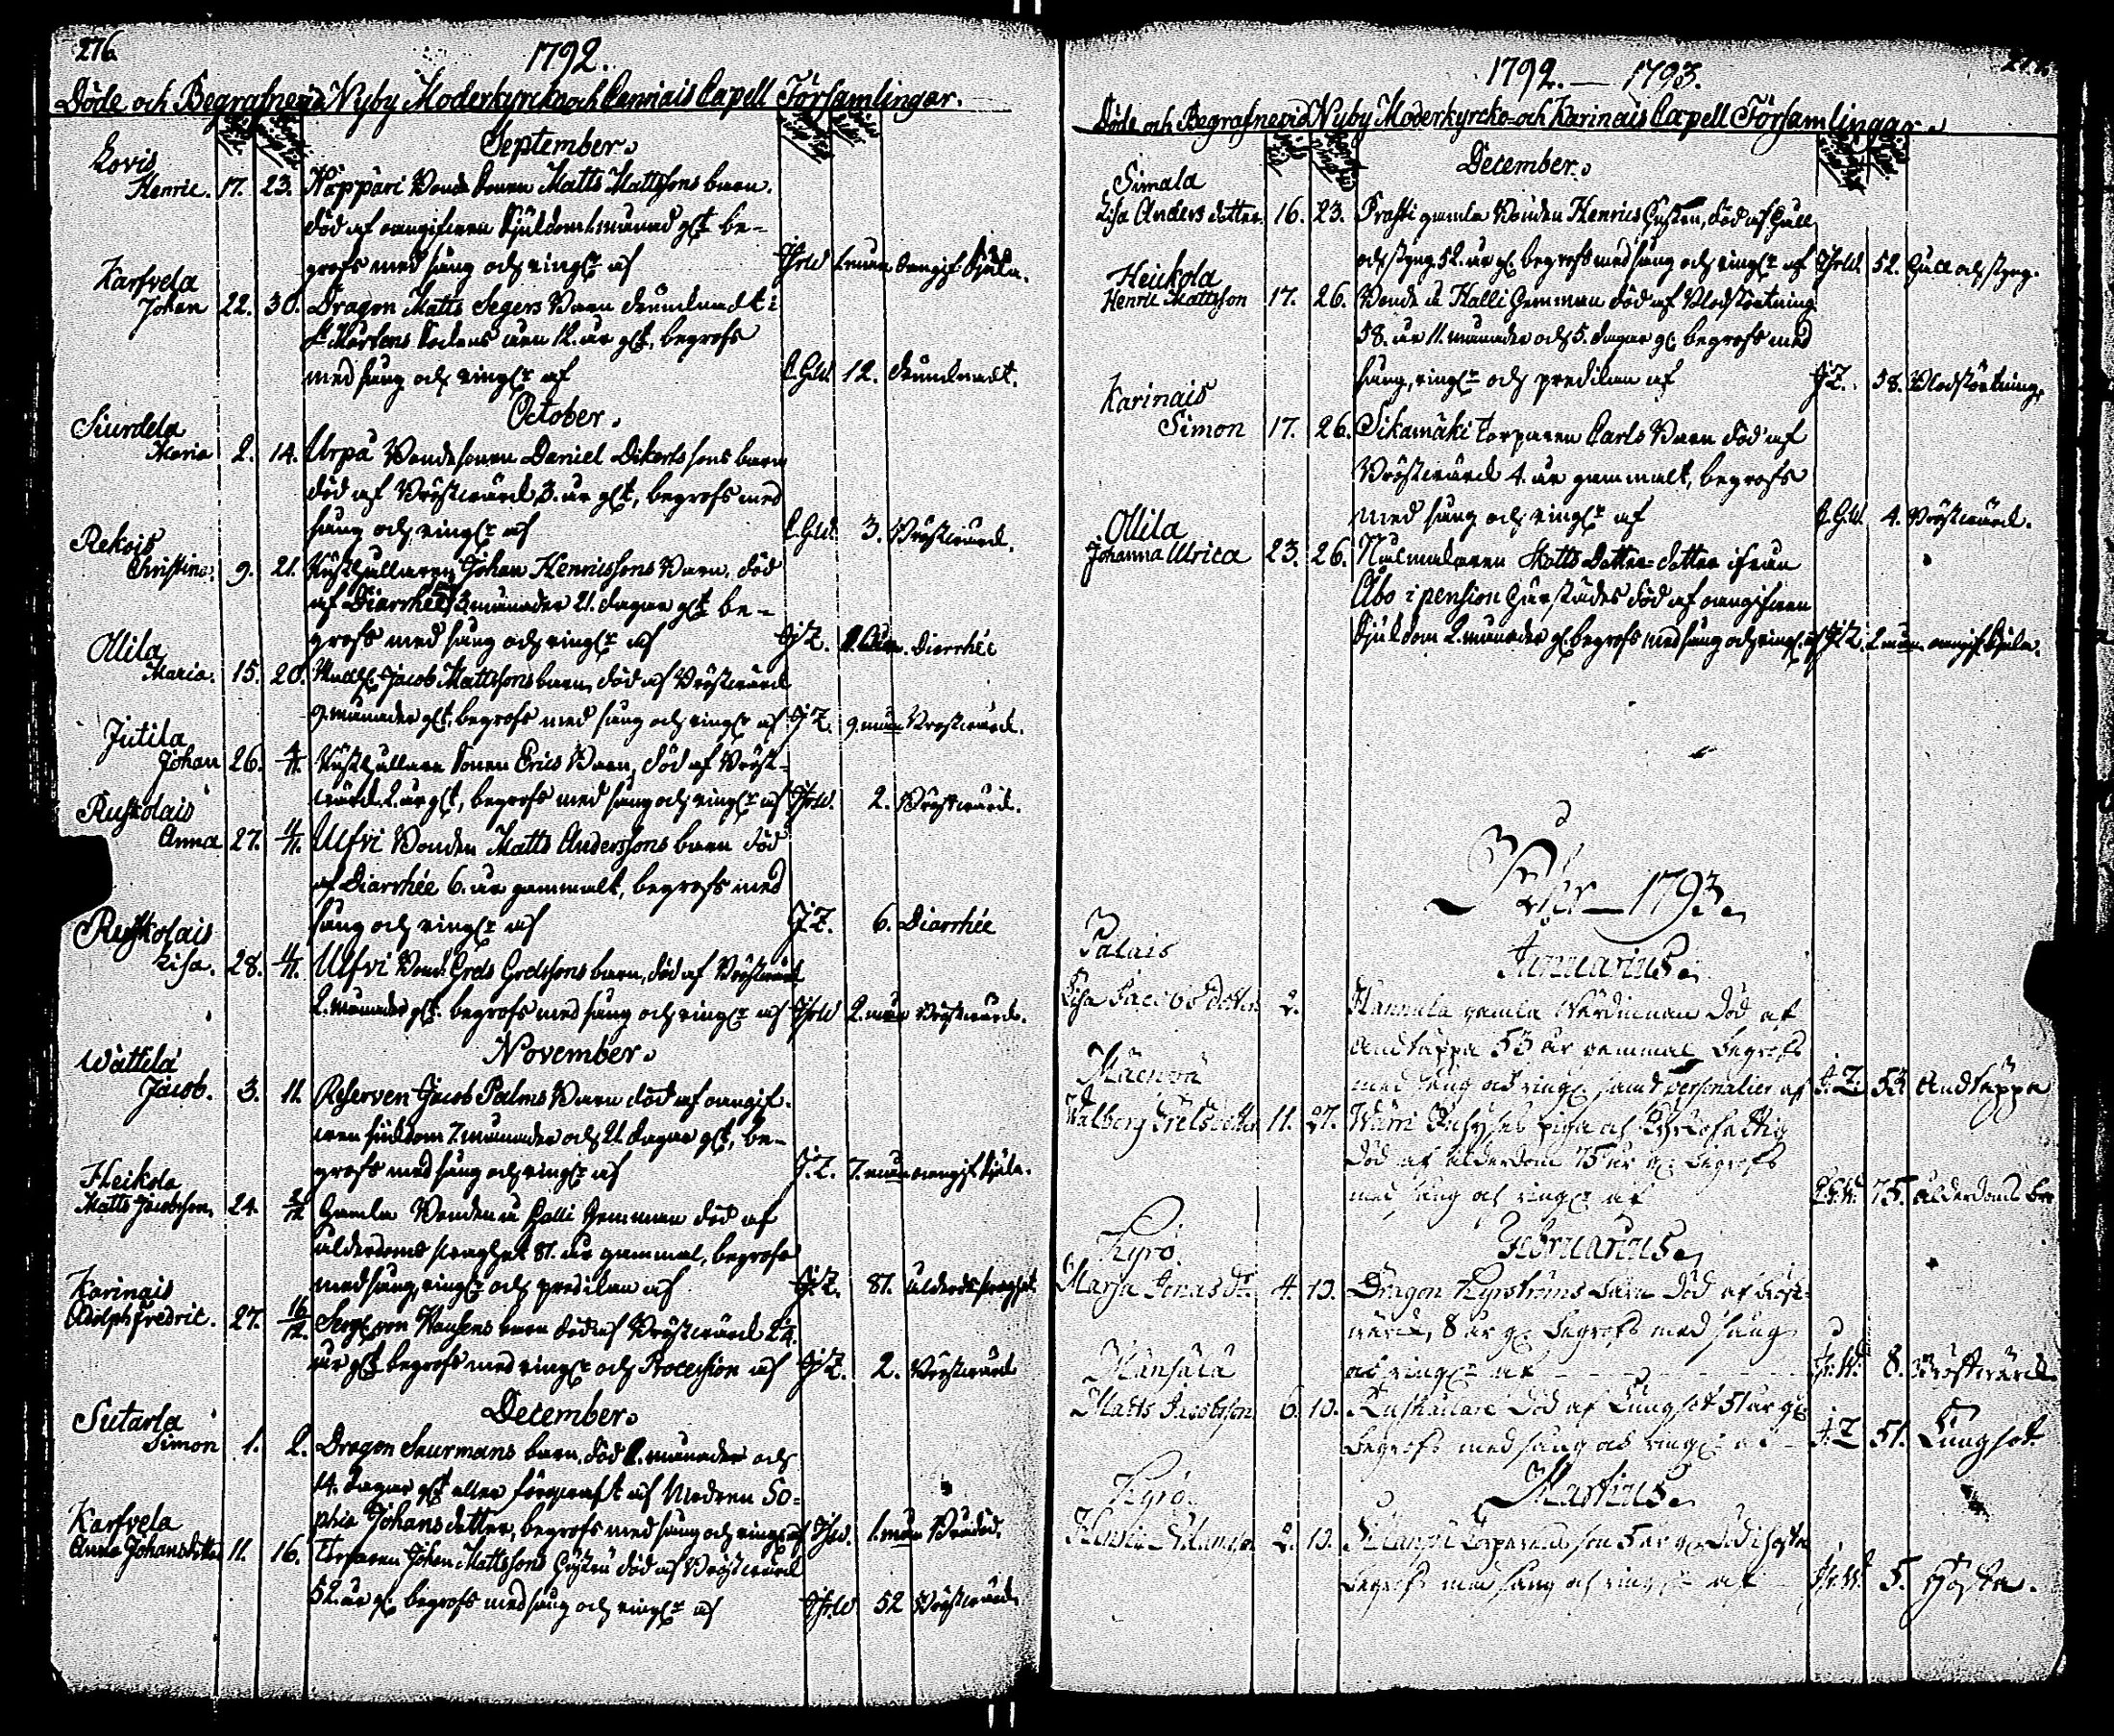 276.
1792.
Döde och Begrafne vid Nyby Moderkyrcko och Carinais Capell Församlingar.
September.
Lovis
Henric. 17. 23. Käppäri Bonde Sonen Matts Mattssons barn.
död af oangifven Sjukdom 1. månad glt be-
grofs med sång och ringn: af
Karfvela
Johan 22. 30. Dragon Matts Segers Barn
Mårtens 12. år glt, begrofs
med sång och ringn: af C.G.W. 12.
October.
Siurdela
Maria 2. 14. Urpå Bondesonen Daniel Dikertssons barn
död af Bröstwärck 3. år glt, begrofs med
sång och ringn: af C.G.W. 3. Bröstwärck.
Rekois
Christina. 9. 21. Rusthållaren Johan Henricssons Barn. död
af Diarrhée 3 månader 21. dagar glt be-
grofs med sång och ringn: af J.Z. Diarrhée
Ollila
Maria. 15. 20. Jacob Mattssons barn, död af Bröstwärck
9. månader glt, begrofs med sång och ringn: af J.Z. 9. mån Bröstwärck.
Jutila
Johan 26. 4/11. Rusthållare Sonen Erics Barn, död af Bröst-
wärck 2. år glt, begrofs med sång och ringn: af 2. Bröstwärck.
Ruskolais
Anna 27. 4/11. Ulfvi Bonden Matts Anderssons barn död
af Diarrhée 6. år gammalt, begrofs med
sång och ringn: af J.Z. 6. Diarrhée
Ruskolais
Lisa. 28. 4/11. Ulfvi Bond: Grels Grelssons barn, död af Bröstwärck
2. månader glt. begrofs med sång och ringn: af 2. mån Bröstwärck.
November.
Wättilä
Jacob. 3. 11. Reserven Jacob Palms Barn död af oangif-
ven siukdom 7. månader och 21. dagar glt, be-
grofs med sång och ringn: af J.Z. 7. mån oangif. Siukd.
Heikola
Matts Jacobsson. 24. 2/12 Gamla Bonden å Halli Hemman död af
ålderdoms svaghet 81. år gammal, begrofs
med sång, ringn: och predikan af J.Z. 81. ålderds svaghet
Karinais
Adolph Fredric. 27. 16/12. Serg: von Hausens barn död af Bröstwärck 2 1/4.
år glt begrofs med ringn: och Procession af J.Z. 2. Bröstwärck
December.
Sutarla
Simon 1. 2. Dragon Snurmans barn, död 1. månader och
14. dagar glt af Modren So-
phia Johansdotter, begrofs med sång och ringn: af 1. mån
Karfvela
Anna Johansdotter 11. 16. Torparen Johan Mattssons Hustru död af Bröstwärck
52. år gl. begrofs med sång och ringn: af 52 Bröstwärck
1792. — 1793.
Döde och Begrafne vid Nyby Moderkyrcko- och Karinais Capell Församlingar.
December.
Simala
Lisa Andersdotter. 16. 23. Prassi gamla Bonden Henrics Hustru, död af Håll
och styng 52. år gl. begrofs med sång och ringn: af 52. Håll och styng.
Heickola
Henric Mattsson 17. 26. Bonde å Halli Hemman död af Blodstörtning
58. år 11. månader och 5. dagar gl. begrofs med
sång, ringn: och predikan af J.Z. 58. Blodstörtning.
Karinais
Simon 17. 26. Sikamäki Torparen Carls Barn död af
Bröstwärck 4. år gammalt, begrofs
med sång och ringn: af C.G.W. 4. Bröstwärck.
Ollila
Johanna Ulrica 23. 26. Matts Dotter-dotter ifrån
Åbo i pension härstädes död af oangifven
Sjukdom 2. månader gl. begrofs med sång och ringn: af J.Z. 2. mån oangif. Sjukd.
Åhr — 1793.
Januarius.
Palais
Lisa Jacobsdotter 2. Hannula gamla Wärdinnan död af
Andtäppa 53 år gammal, begrofs
med sång och ringn: samt personalier af J.Z. 53. Andtäppa
Mäenpä
Walborg Grelsdotter 11. 27. Inhyses piga och Kyrkofattig
död af ålderdom 75 år gl. begrofs
med sång och ringn: af C.G.W. 75. ålderdoms
Februarius.
Kyrö
Maria Jonas Dr. 4. 10. Dragon Kyrströms barn död af Bröst-
wärck, 8 år gl. begrofs med sång
och ringn: af 8. Bröstwärck.
Mansala
Matts Jacobsson 6. 10. Rusthållare död af Lungsot 51 år gl.
begrofs med sång och ringn: af J.Z. 51. Lungsot.
Martius.
Kyrö
2. 10. Torparens son 5 år gl. död i hosta
begrofs med sång och ringn: af 5. Hosta.